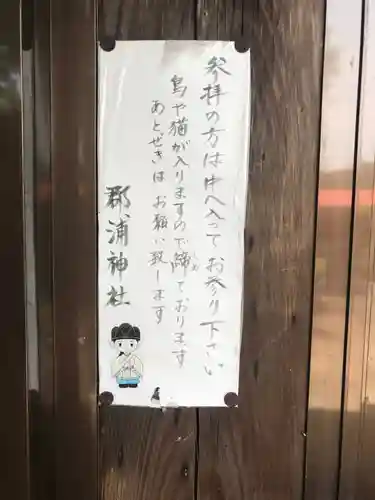 参拝の方は中へ入ってお参り下さい
鳥や猫が入りますので締めております
あとぜきはお願い致します
郡浦神社